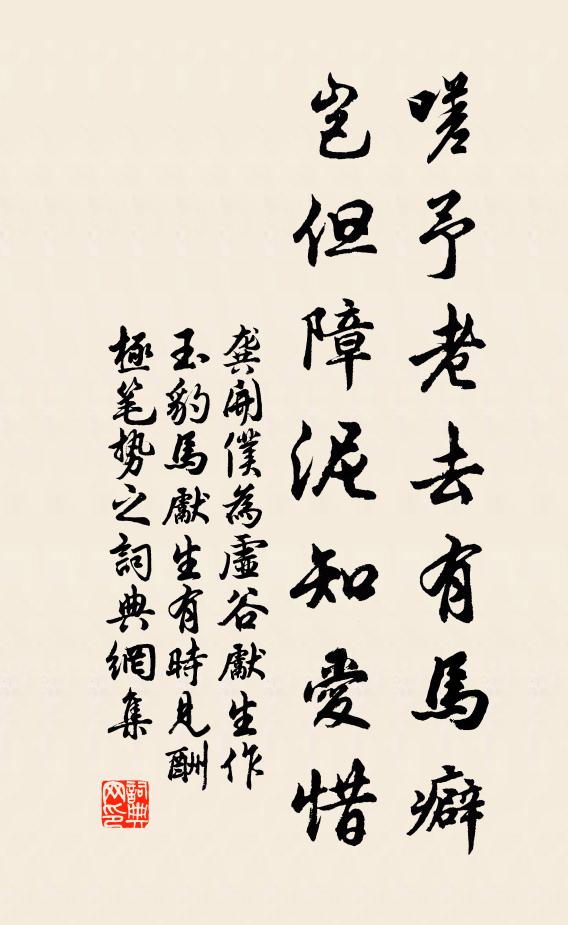 嗟予老去有馬癖
豈但障泥知愛惜
龔開僕為虛谷獻生作
玉豹馬獻生有時見酬
極笔势之詞典網集
詞典网印